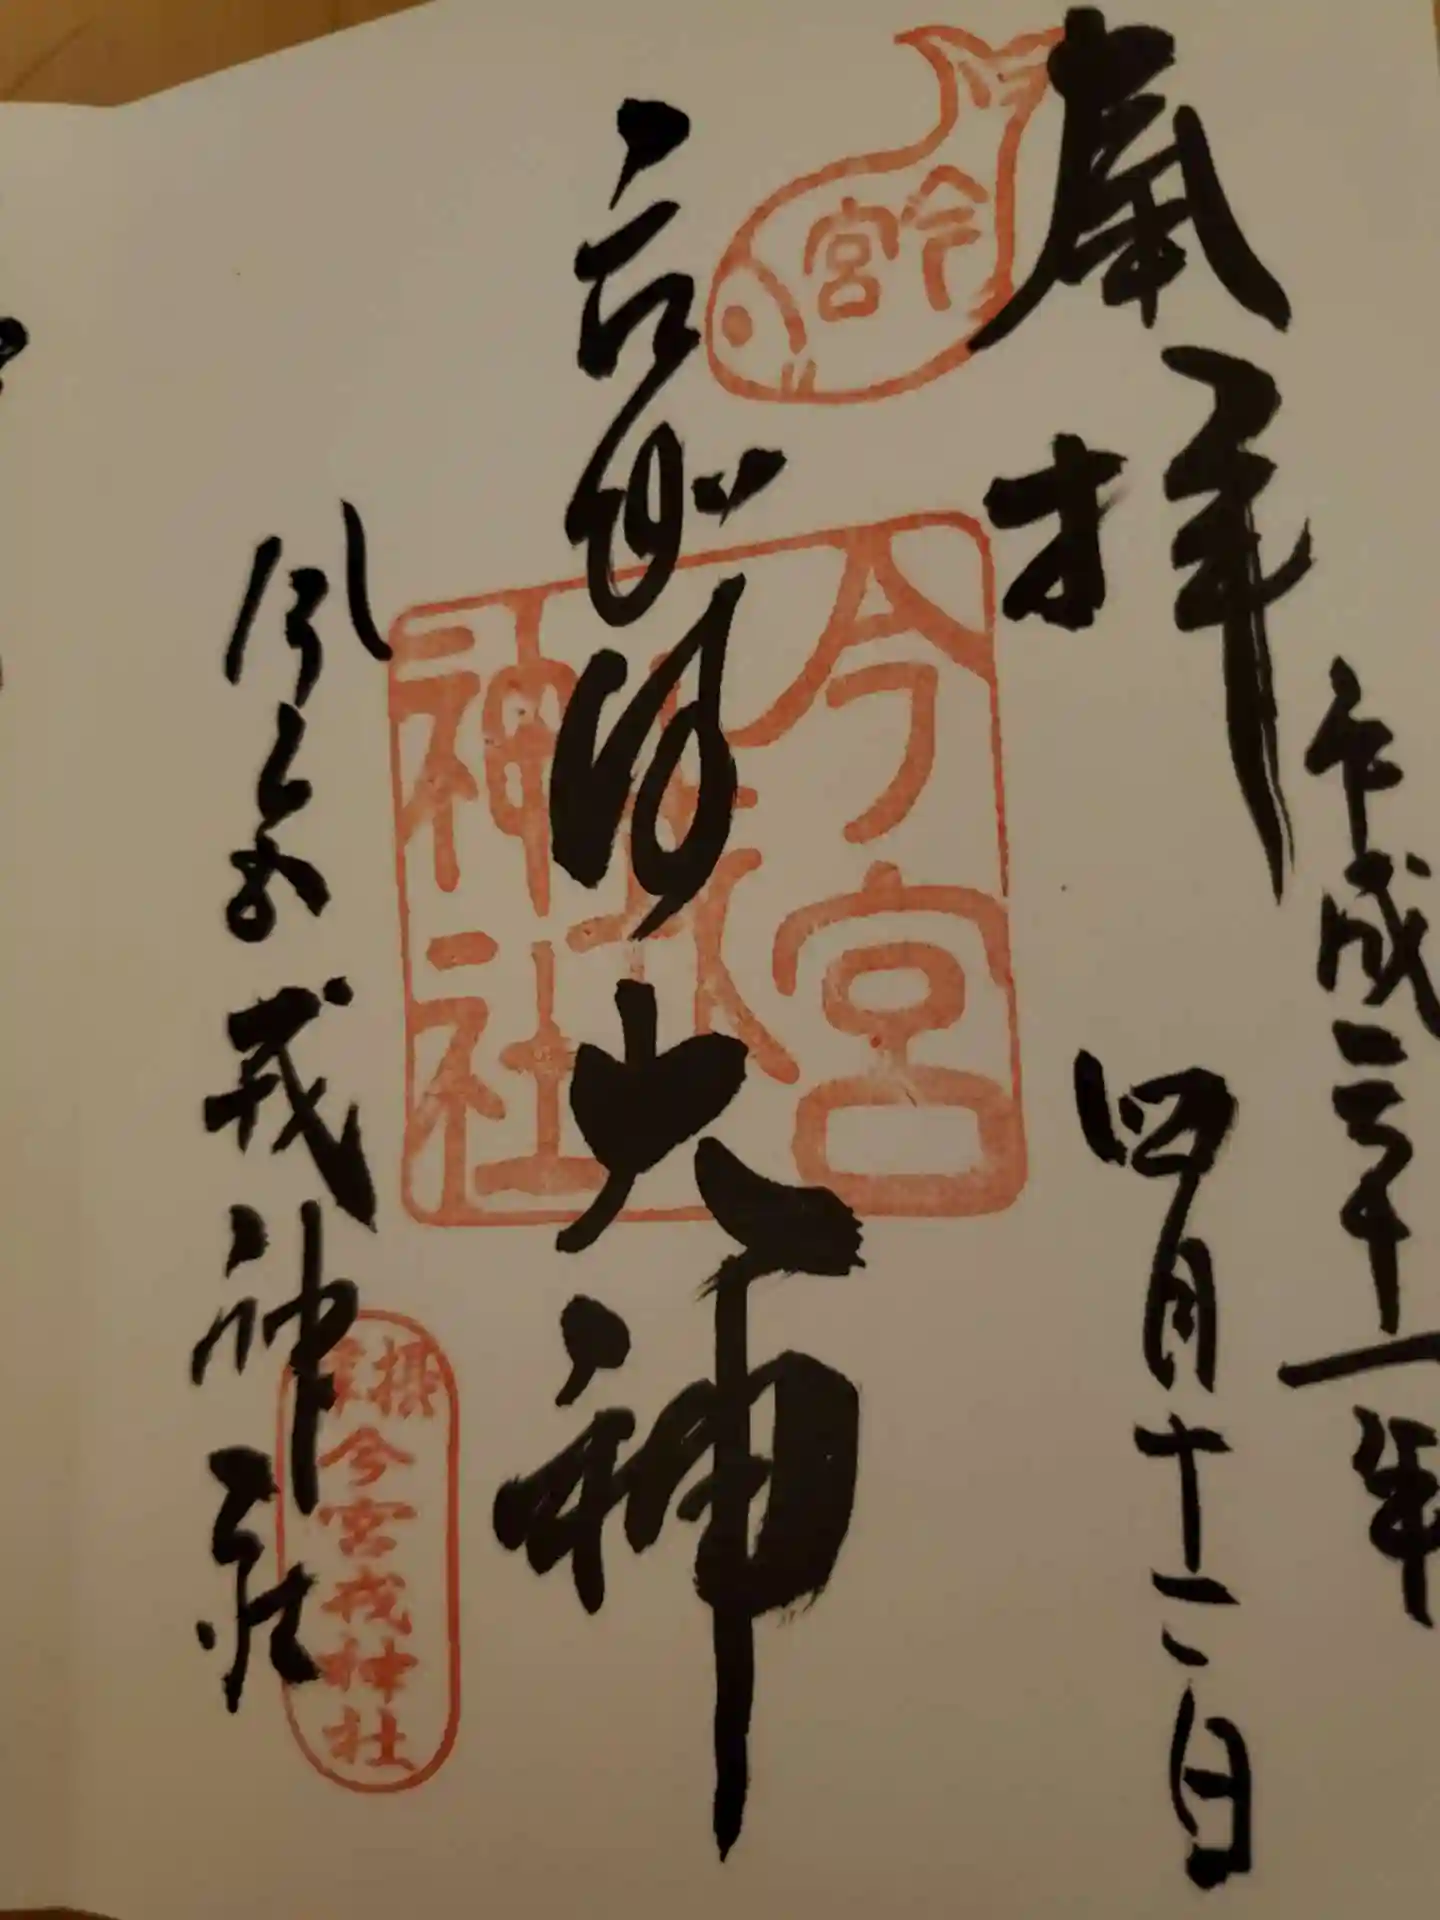 奉拝
平成三十一年
四月十二日
今宮
大神
今宮戎神社
今宮戎神社
摂
今宮戎神社